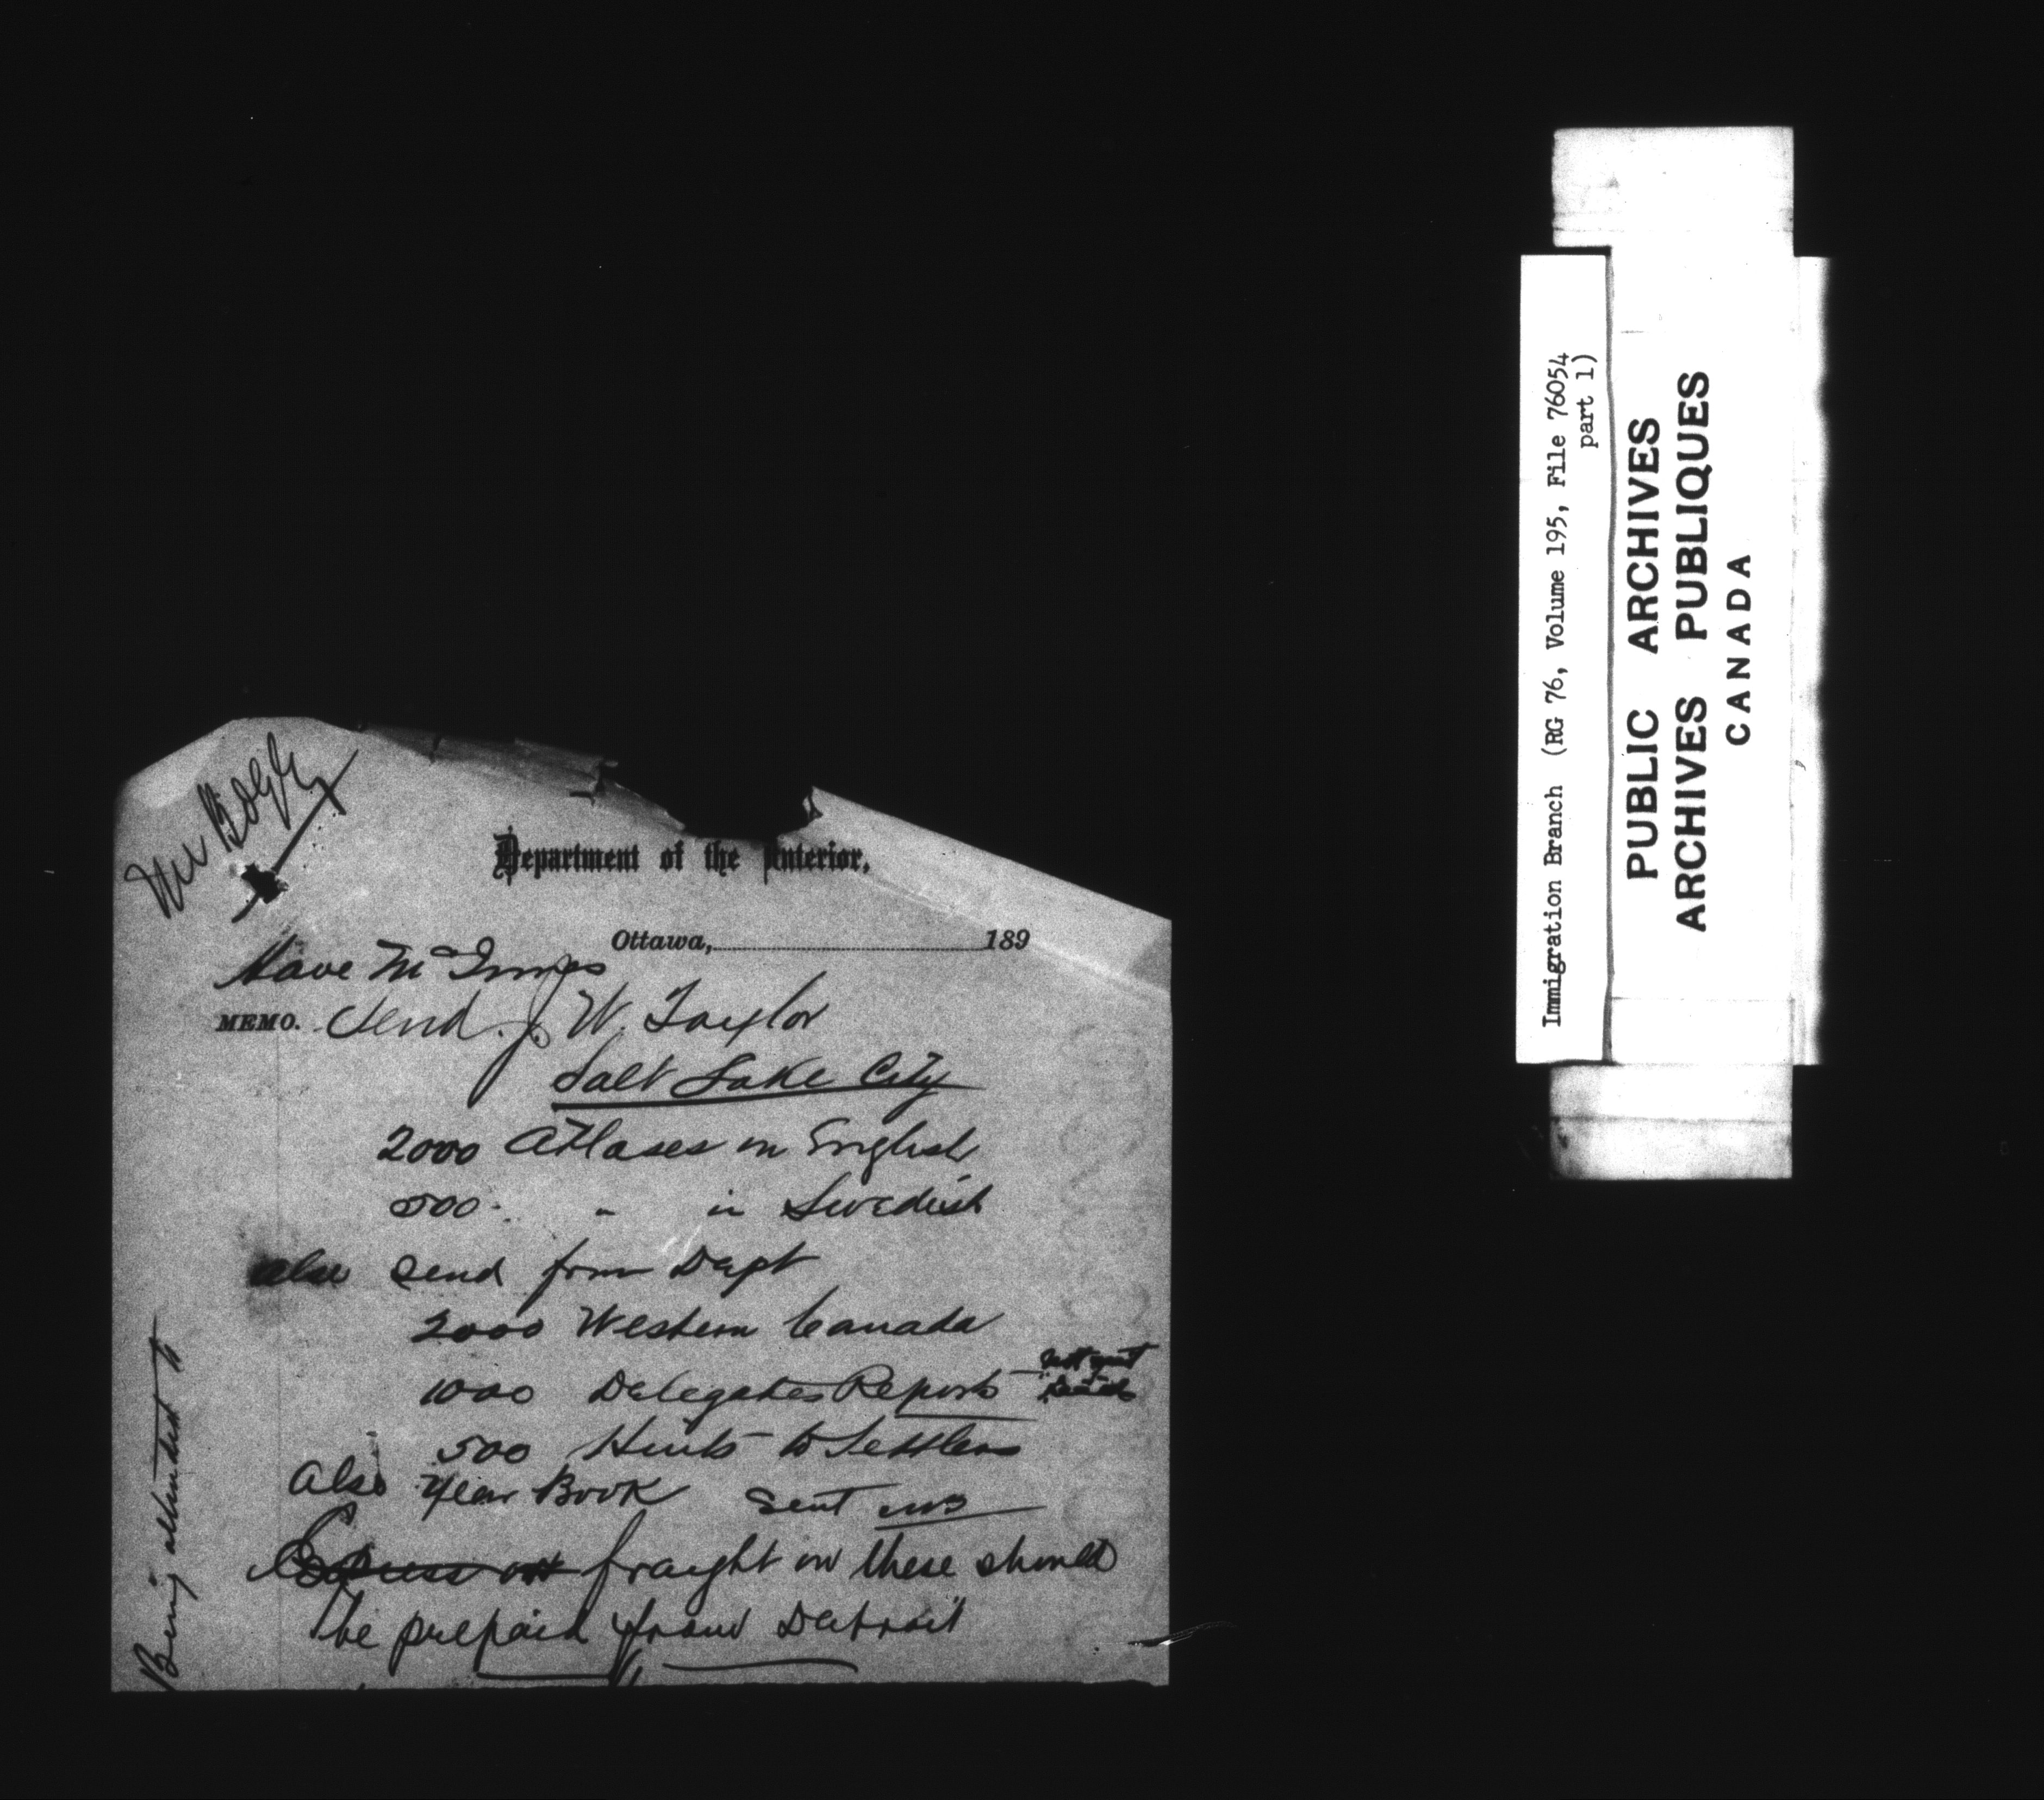 Department of the Interior.
Ottawa, 189
Have McInnes
MEMO. Send J. W. Taylor
Salt Lake City
2000 Atlases in English
500 " in Swedish
also send from Dept
2000 Western Canada
1000 Delegates Reports not yet
500 Hints to Settlers
Also Year Book sent
Express on fraight on these should
be prepaid from Detroit
Being attended to
Immigration Branch (RG 76, Volume 195, File 76054
part 1)
PUBLIC ARCHIVES
ARCHIVES PUBLIQUES
CANADA